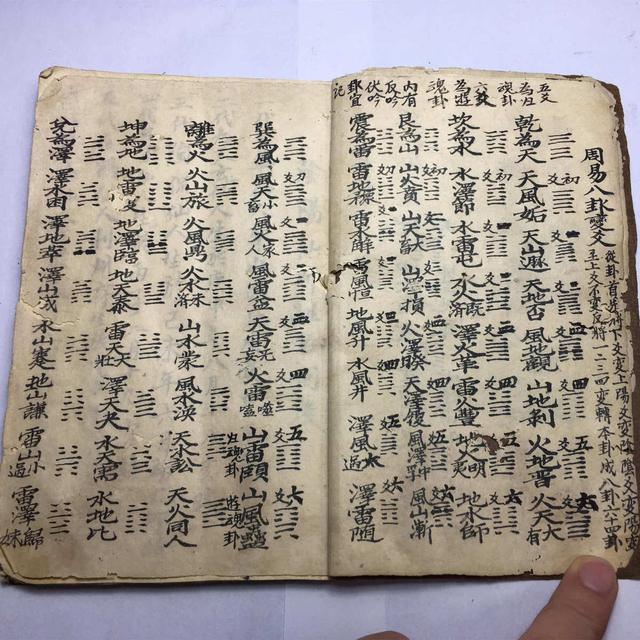 五爻
為归
魂卦
六爻
為遊
魂卦
内有
反吟
伏吟
卦宜
記
周易八卦變爻
從卦首起將下爻变上陽爻变陰陰爻变陽变
至上爻不变反將一二三四变轉本卦成八卦六十四卦
乾為天 天風姤 天山遯 天地否 風地觀 山地剥 火地晋 火天大有
坎為水 水澤節 水雷屯 水火既濟 澤火革 雷火豐 地火明夷 地水師
艮為山 山火賁 山天大畜 山澤損 火澤睽 天澤履 風澤中孚 風山漸
震為雷 雷地豫 雷水解 雷風恒 地風升 水風井 澤風大過 澤雷随
巽為風 風天小畜 風火家人 風雷益 天雷无妄 火雷噬嗑 山雷頤 归魂卦 山風蠱 遊魂卦
離為火 火山旅 火風鼎 火水未濟 山水蒙 風水渙 天水訟 天火同人
坤為地 地雷复 地澤臨 地天泰 雷天大壯 澤天夬 水天需 水地比
兌為澤 澤水困 澤地萃 澤山咸 水山蹇 地山謙 雷山小過 雷澤歸妹